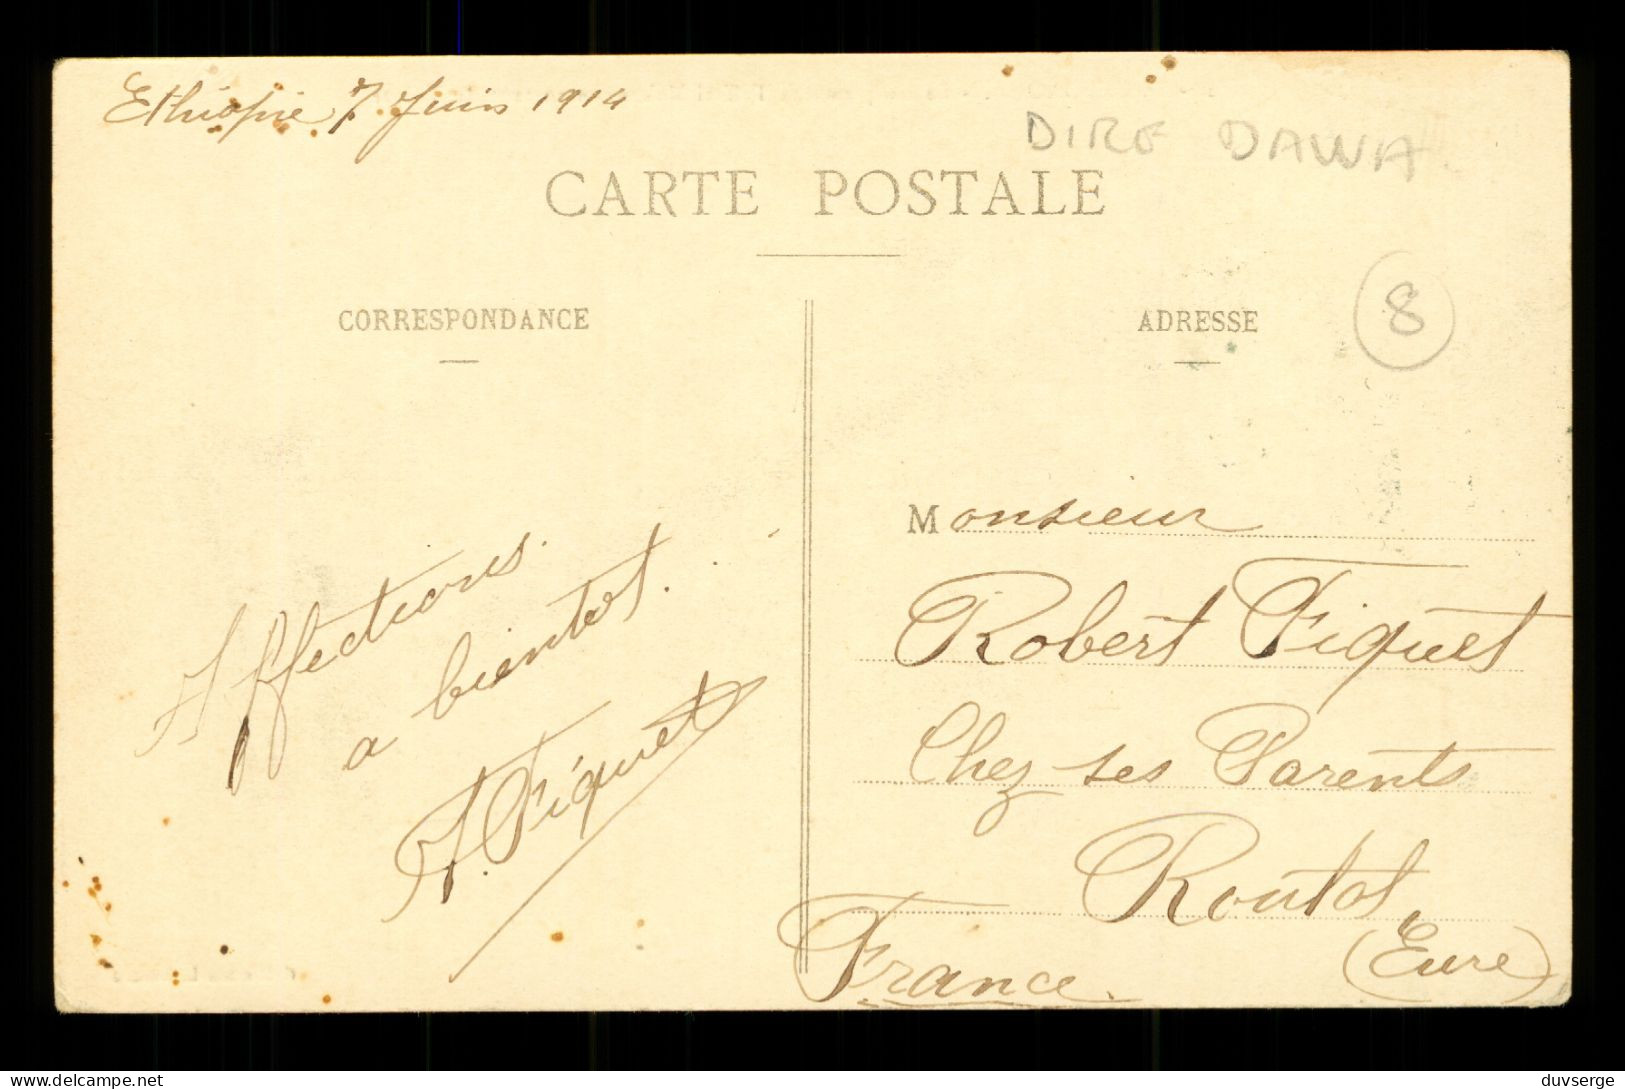 Ethiopie 7 Juin 1914
DIRE DAWA
CARTE POSTALE
CORRESPONDANCE
ADRESSE
8
Affections.
a bientot.
A. Fiquet
Monsieur
Robert Fiquet
Chez ses Parents
Routot
(Eure)
France.
delcampe.net
duvserge